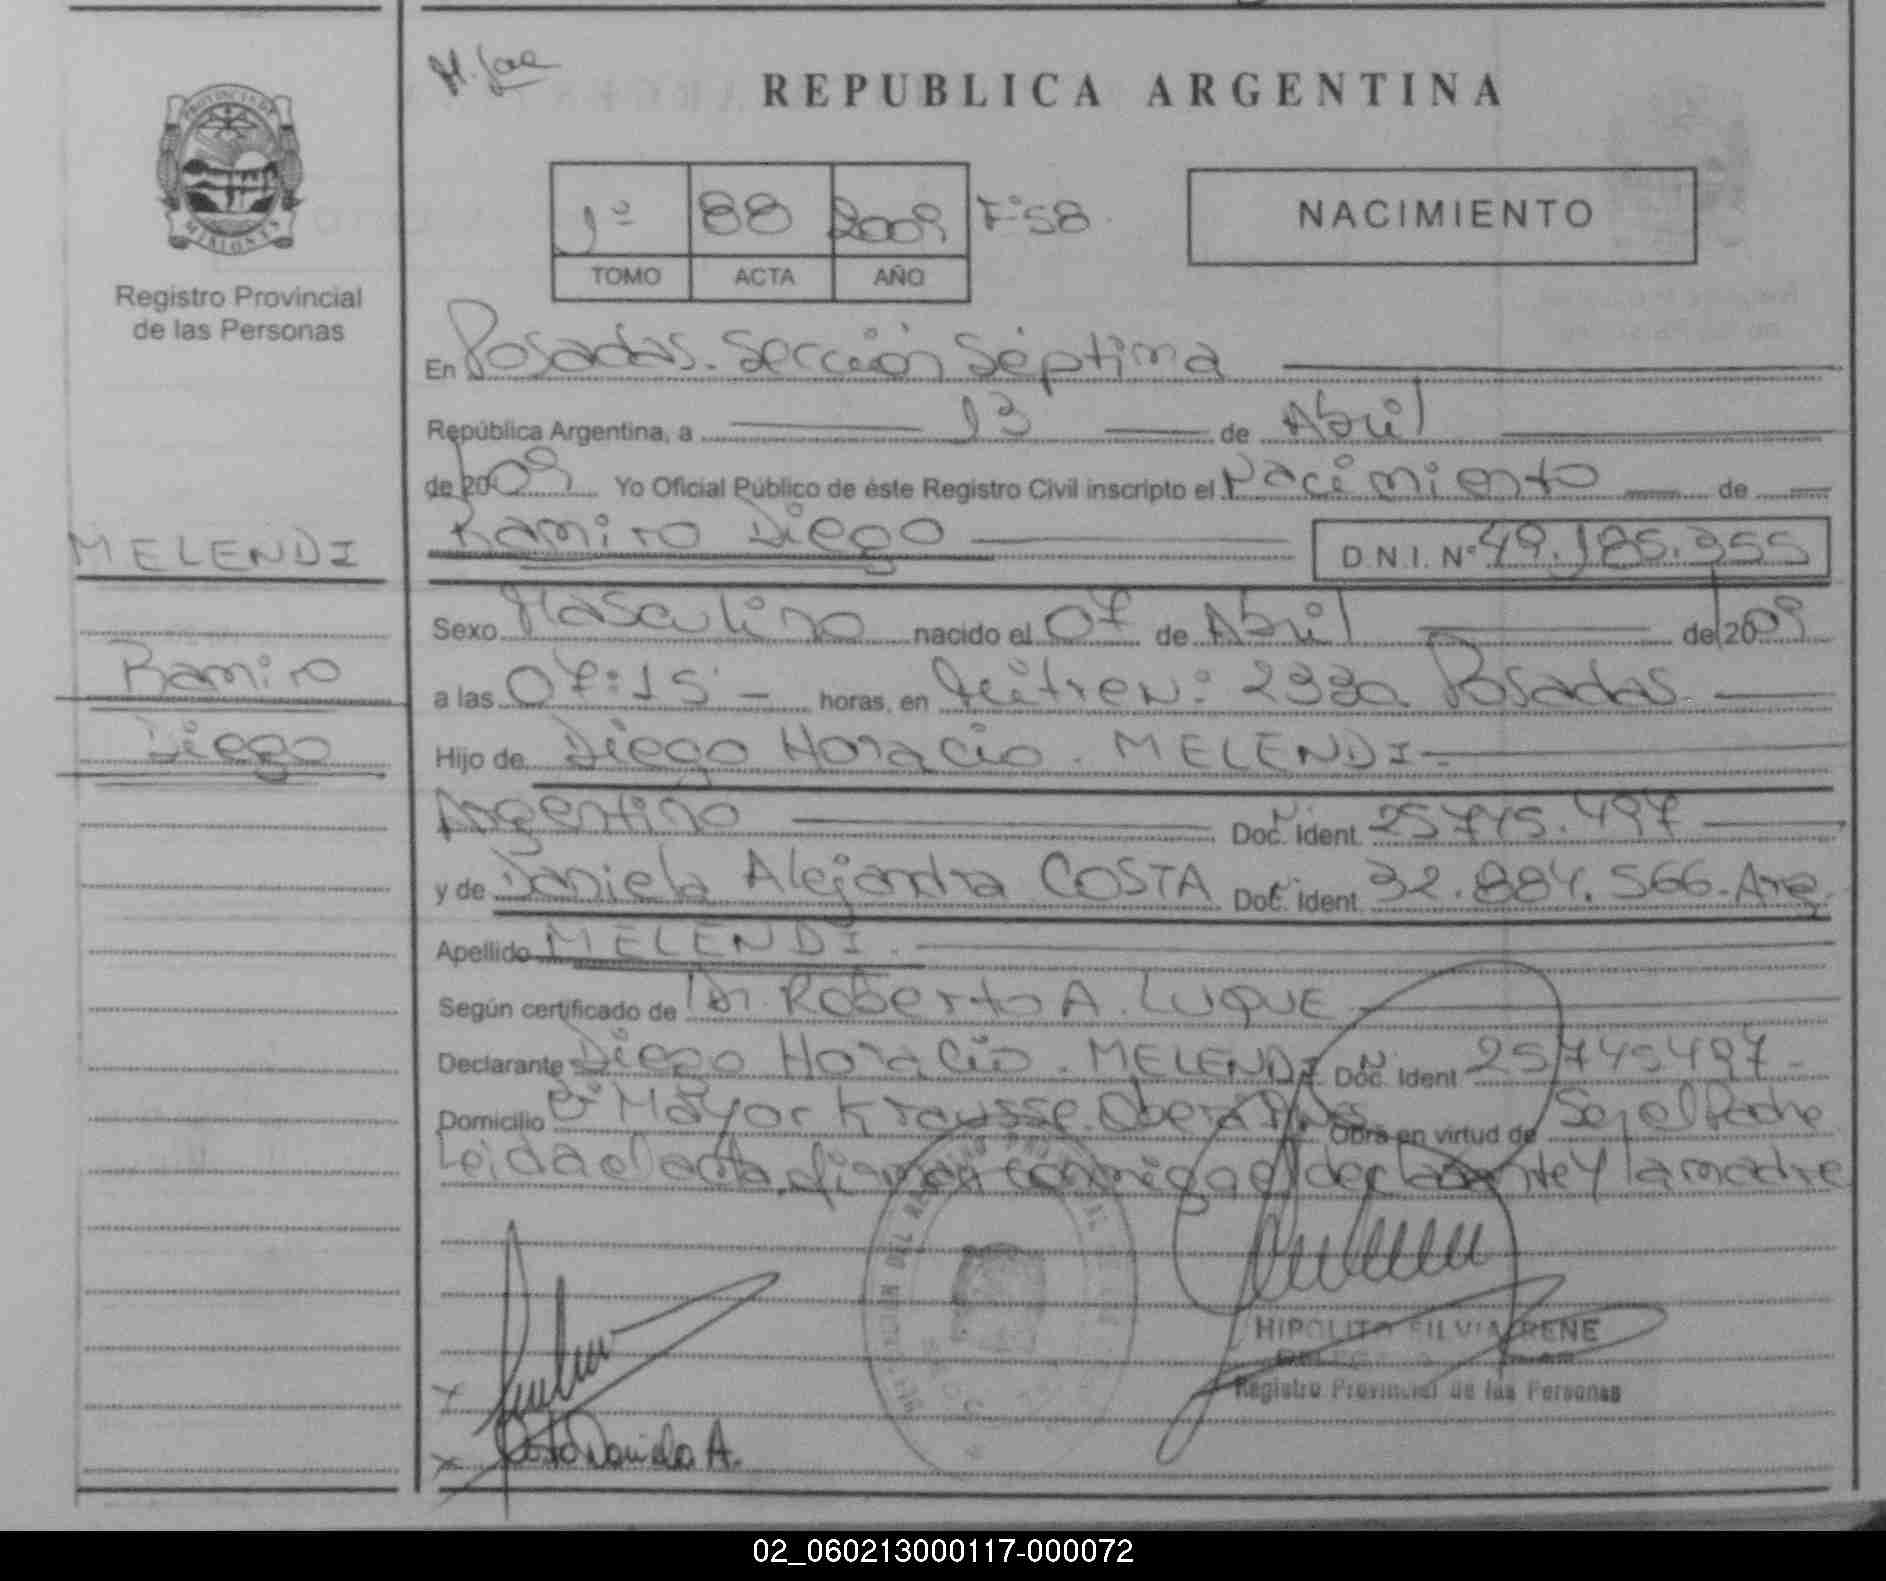 REPUBLICA ARGENTINA
PROVINCIA DE
MISIONES
Registro Provincial
de las Personas
1º 88 2009 Fº 58
TOMO ACTA AÑO
NACIMIENTO
En Posadas. Sección Séptima
República Argentina, a 13 de Abril
de 2009 Yo Oficial Público de éste Registro Civil inscripto el Nacimiento de
Ramiro Diego D.N.I. Nº 49.185.355
MELENDI
Sexo Masculino nacido el 07 de Abril de 2009
Ramiro
a las 07:15 horas, en 2330 Posadas
Diego
Hijo de Diego Horacio. MELENDI
Argentino Doc. Ident. 25745.497
y de Daniela Alejandra COSTA Doc. Ident. 32.884.566. Arg.
Apellido MELENDI.
Según certificado de Dr. Roberto A. LUQUE
Declarante Diego Horacio. MELENDI Doc. Ident 25745497
Domicilio Mayor Krausse. Obera Obra en virtud de Ser el Padre
Leida el acta, firman conmigo el declarante y la madre
HIPOLITO SILVIA RENE
Registro Provincial de las Personas
Costa Daniela A.
02_060213000117-000072